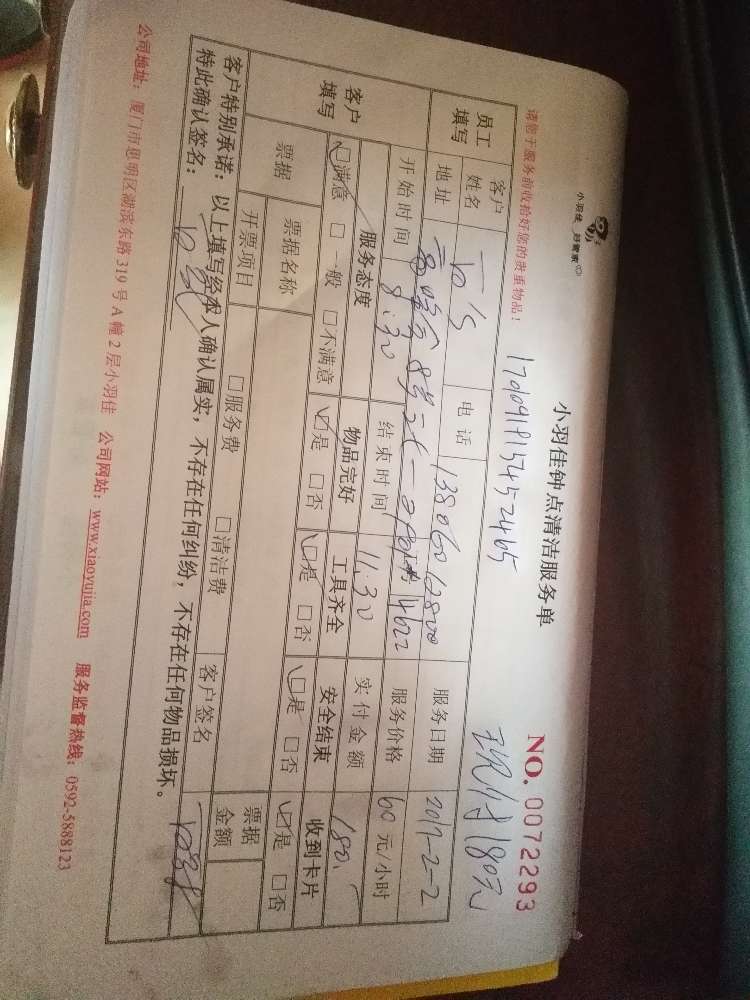 小羽佳 好管家
小羽佳钟点清洁服务单
NO. 0072293
请您于服务前收拾好您的贵重物品！
现付180元
员工填写
客户姓名 电话 13806012800 服务日期 2017-2-2
地址 服务价格 60元/小时
开始时间 8:30 结束时间 11:30 实付金额 180.
客户填写
服务态度 物品完好 工具齐全 安全结束 收到卡片
☑满意 □一般 □不满意 ☑是 □否 ☑是 □否 ☑是 □否 ☑是 □否
票据 票据名称 □服务费 □清洁费 客户签名 票据金额
开票项目
客户特别承诺：以上填写经本人确认属实，不存在任何纠纷，不存在任何物品损坏。
特此确认签名：
公司地址：厦门市思明区湖滨东路319号A幢2层小羽佳 公司网站：www.xiaoyujia.com 服务监督热线：0592-5888123